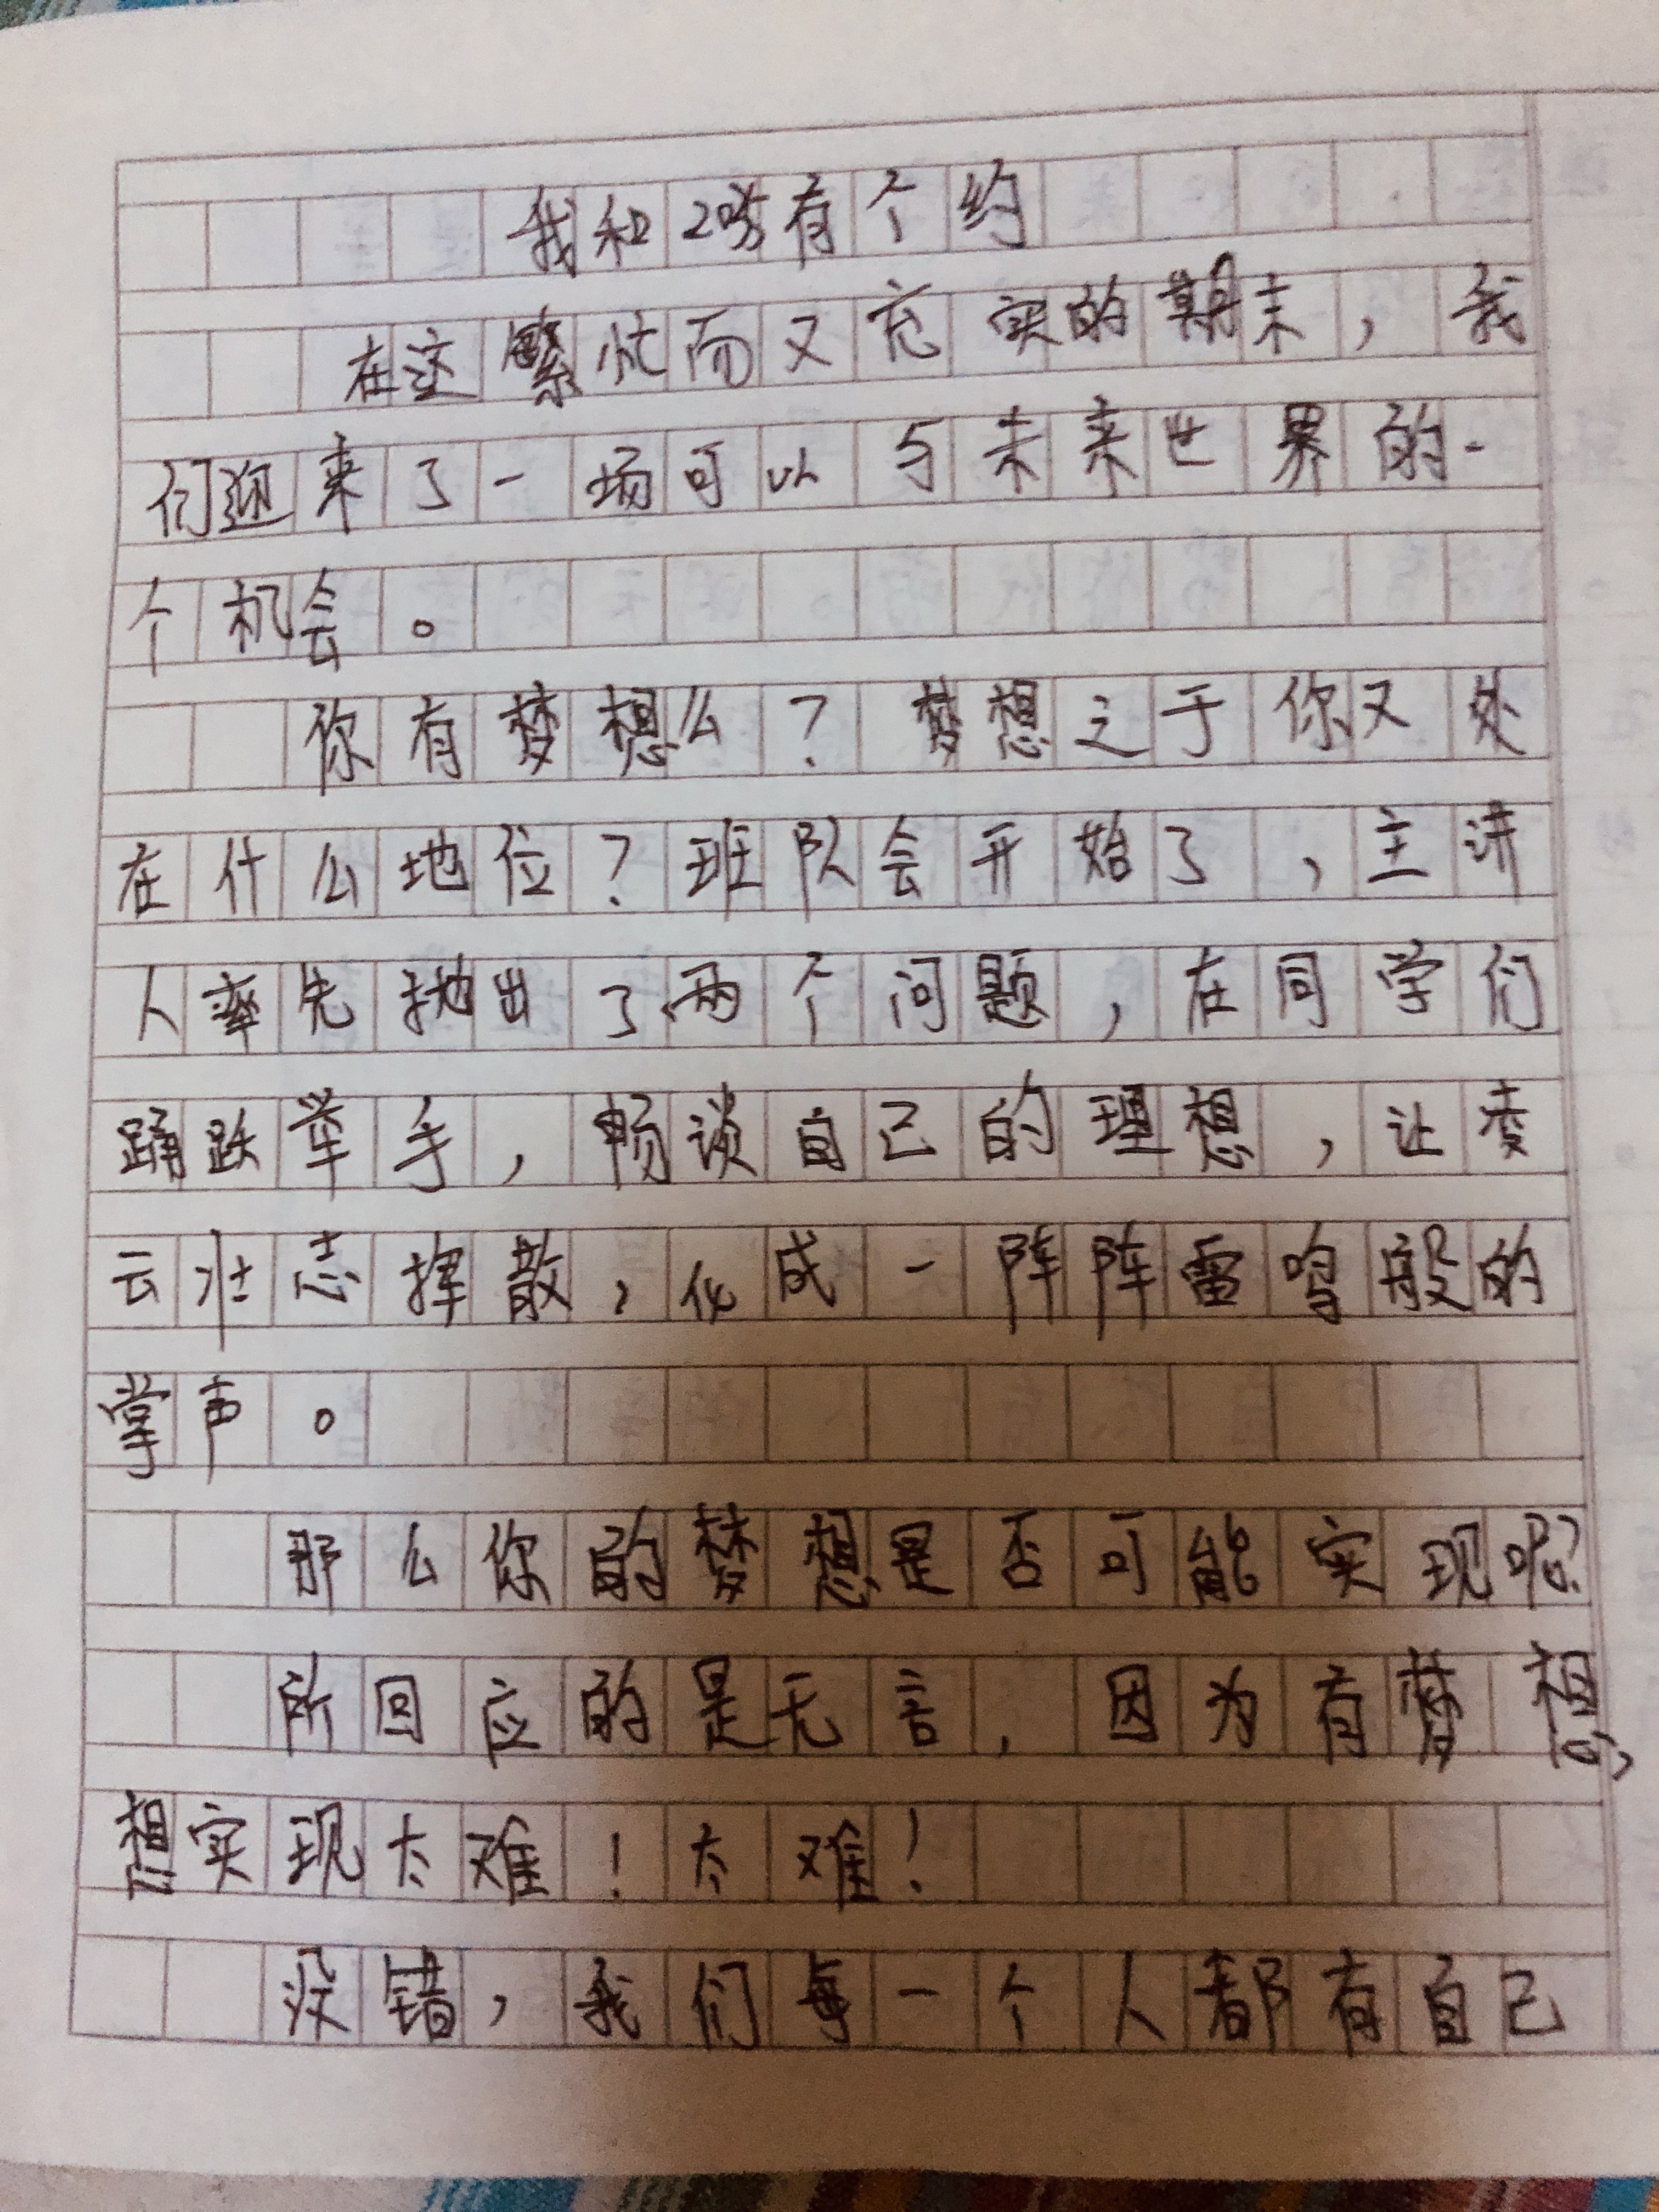 我和2035有个约
在这繁忙而又充实的期末，我
们迎来了一场可以与未来世界的一
个机会。
你有梦想么？梦想之于你又处
在什么地位？班队会开始了，主讲
人率先抛出了两个问题，在同学们
踊跃举手，畅谈自己的理想，让凌
云壮志挥散，化成一阵阵雷鸣般的
掌声。
那么你的梦想是否可能实现呢？
所回应的是无言，因为有梦想，
想实现太难！太难！
没错，我们每一个人都有自己